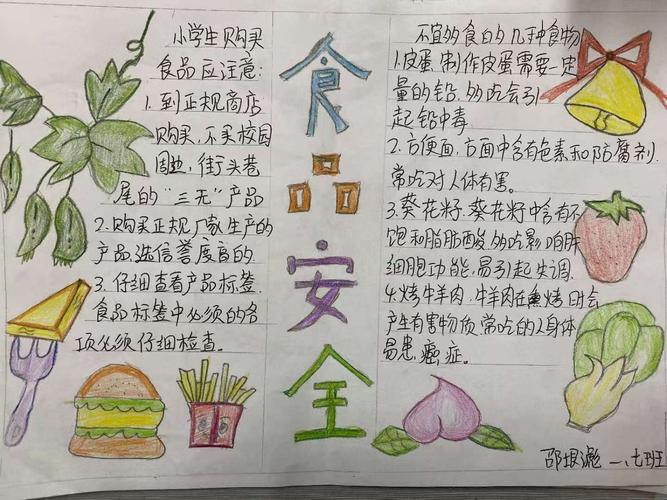 小学生购买
食品应注意:
1.到正规商店
购买,不买校园
周边,街头巷
尾的“三无”产品
2.购买正规厂家生产的
产品,选信誉度高的.
3.仔细查看产品标签.
食品标签中必须的各
项必须仔细检查。
食
品
安
全
不宜多食的几种食物
1.皮蛋,制作皮蛋需要一定
量的铅,多吃会引
起铅中毒
2.方便面,方面中含有色素和防腐剂.
常吃对人体有害。
3.葵花籽.葵花籽中含有不
饱和脂肪酸,多吃影响肝
细胞功能,易引起失调.
4.烤牛羊肉,牛羊肉在熏烤时会
产生有害物质,常吃的人身体
易患癌症。
邵垠 一、七班